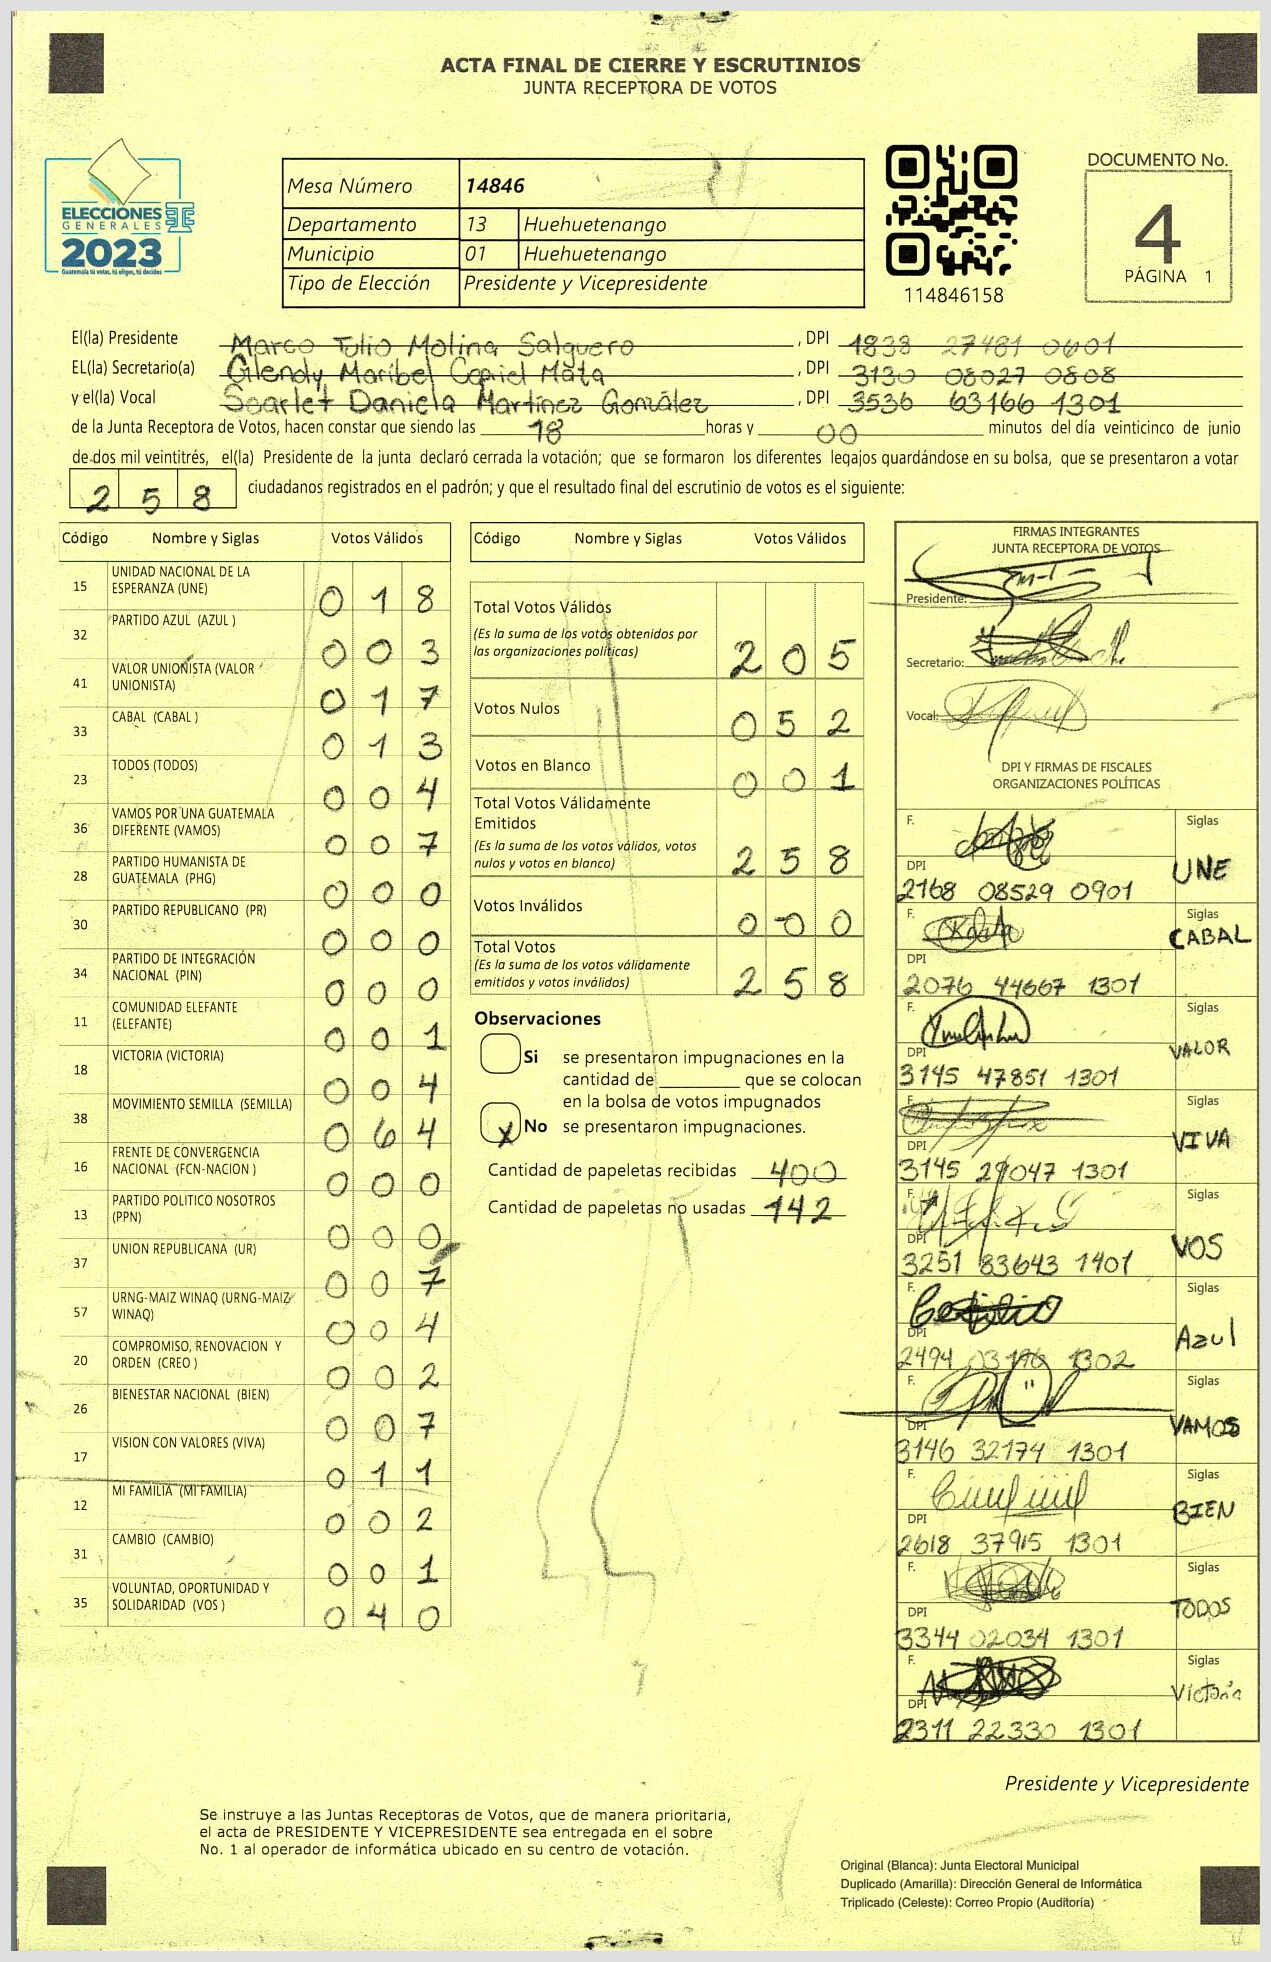 ACTA FINAL DE CIERRE Y ESCRUTINIOS
JUNTA RECEPTORA DE VOTOS
ELECCIONES
GENERALES
2023
Guatemala tú votas, tú eliges, tú decides
Mesa Número 14846
Departamento 13 Huehuetenango
Municipio 01 Huehuetenango
Tipo de Elección Presidente y Vicepresidente
114846158
DOCUMENTO No.
4
PÁGINA 1
El(la) Presidente Marco Tulio Molina Salguero , DPI 1838 27481 0601
EL(la) Secretario(a) Glendy Maribel Capiel Mata , DPI 3130 08027 0808
y el(la) Vocal Scarlet Daniela Martínez González , DPI 3536 63166 1301
de la Junta Receptora de Votos, hacen constar que siendo las 18 horas y 00 minutos del día veinticinco de junio
de dos mil veintitrés, el(la) Presidente de la junta declaró cerrada la votación; que se formaron los diferentes legajos guardándose en su bolsa, que se presentaron a votar
258 ciudadanos registrados en el padrón; y que el resultado final del escrutinio de votos es el siguiente:
Código Nombre y Siglas Votos Válidos
15 UNIDAD NACIONAL DE LA
ESPERANZA (UNE) 018
32 PARTIDO AZUL (AZUL ) 003
41 VALOR UNIONISTA (VALOR
UNIONISTA) 017
33 CABAL (CABAL ) 013
23 TODOS (TODOS) 004
36 VAMOS POR UNA GUATEMALA
DIFERENTE (VAMOS) 007
28 PARTIDO HUMANISTA DE
GUATEMALA (PHG) 000
30 PARTIDO REPUBLICANO (PR) 000
34 PARTIDO DE INTEGRACIÓN
NACIONAL (PIN) 000
11 COMUNIDAD ELEFANTE
(ELEFANTE) 001
18 VICTORIA (VICTORIA) 004
38 MOVIMIENTO SEMILLA (SEMILLA) 064
16 FRENTE DE CONVERGENCIA
NACIONAL (FCN-NACION ) 000
13 PARTIDO POLITICO NOSOTROS
(PPN) 000
37 UNION REPUBLICANA (UR) 007
57 URNG-MAIZ WINAQ (URNG-MAIZ
WINAQ) 004
20 COMPROMISO, RENOVACION Y
ORDEN (CREO ) 002
26 BIENESTAR NACIONAL (BIEN) 007
17 VISION CON VALORES (VIVA) 011
12 MI FAMILIA (MI FAMILIA) 002
31 CAMBIO (CAMBIO) 001
35 VOLUNTAD, OPORTUNIDAD Y
SOLIDARIDAD (VOS ) 040
Código Nombre y Siglas Votos Válidos
Total Votos Válidos
(Es la suma de los votos obtenidos por
las organizaciones políticas) 205
Votos Nulos 052
Votos en Blanco 001
Total Votos Válidamente
Emitidos
(Es la suma de los votos válidos, votos
nulos y votos en blanco) 258
Votos Inválidos 000
Total Votos
(Es la suma de los votos válidamente
emitidos y votos inválidos) 258
Observaciones
Si se presentaron impugnaciones en la
cantidad de ________ que se colocan
en la bolsa de votos impugnados
X No se presentaron impugnaciones.
Cantidad de papeletas recibidas 400
Cantidad de papeletas no usadas 142
FIRMAS INTEGRANTES
JUNTA RECEPTORA DE VOTOS
Presidente:
Secretario:
Vocal:
DPI Y FIRMAS DE FISCALES
ORGANIZACIONES POLÍTICAS
F. Siglas
DPI UNE
2168 08529 0901
F. Siglas
DPI CABAL
2076 44667 1301
F. Siglas
DPI VALOR
3145 47851 1301
F. Siglas
DPI VIVA
3145 29047 1301
F. Siglas
DPI VOS
3251 83643 1401
F. Siglas
DPI Azul
2494 03196 1302
F. Siglas
DPI VAMOS
3146 32174 1301
F. Siglas
DPI BIEN
2618 37915 1301
F. Siglas
DPI TODOS
3344 02034 1301
F. Siglas
DPI Victoria
2311 22330 1301
Presidente y Vicepresidente
Se instruye a las Juntas Receptoras de Votos, que de manera prioritaria,
el acta de PRESIDENTE Y VICEPRESIDENTE sea entregada en el sobre
No. 1 al operador de informática ubicado en su centro de votación.
Original (Blanca): Junta Electoral Municipal
Duplicado (Amarilla): Dirección General de Informática
Triplicado (Celeste): Correo Propio (Auditoría)